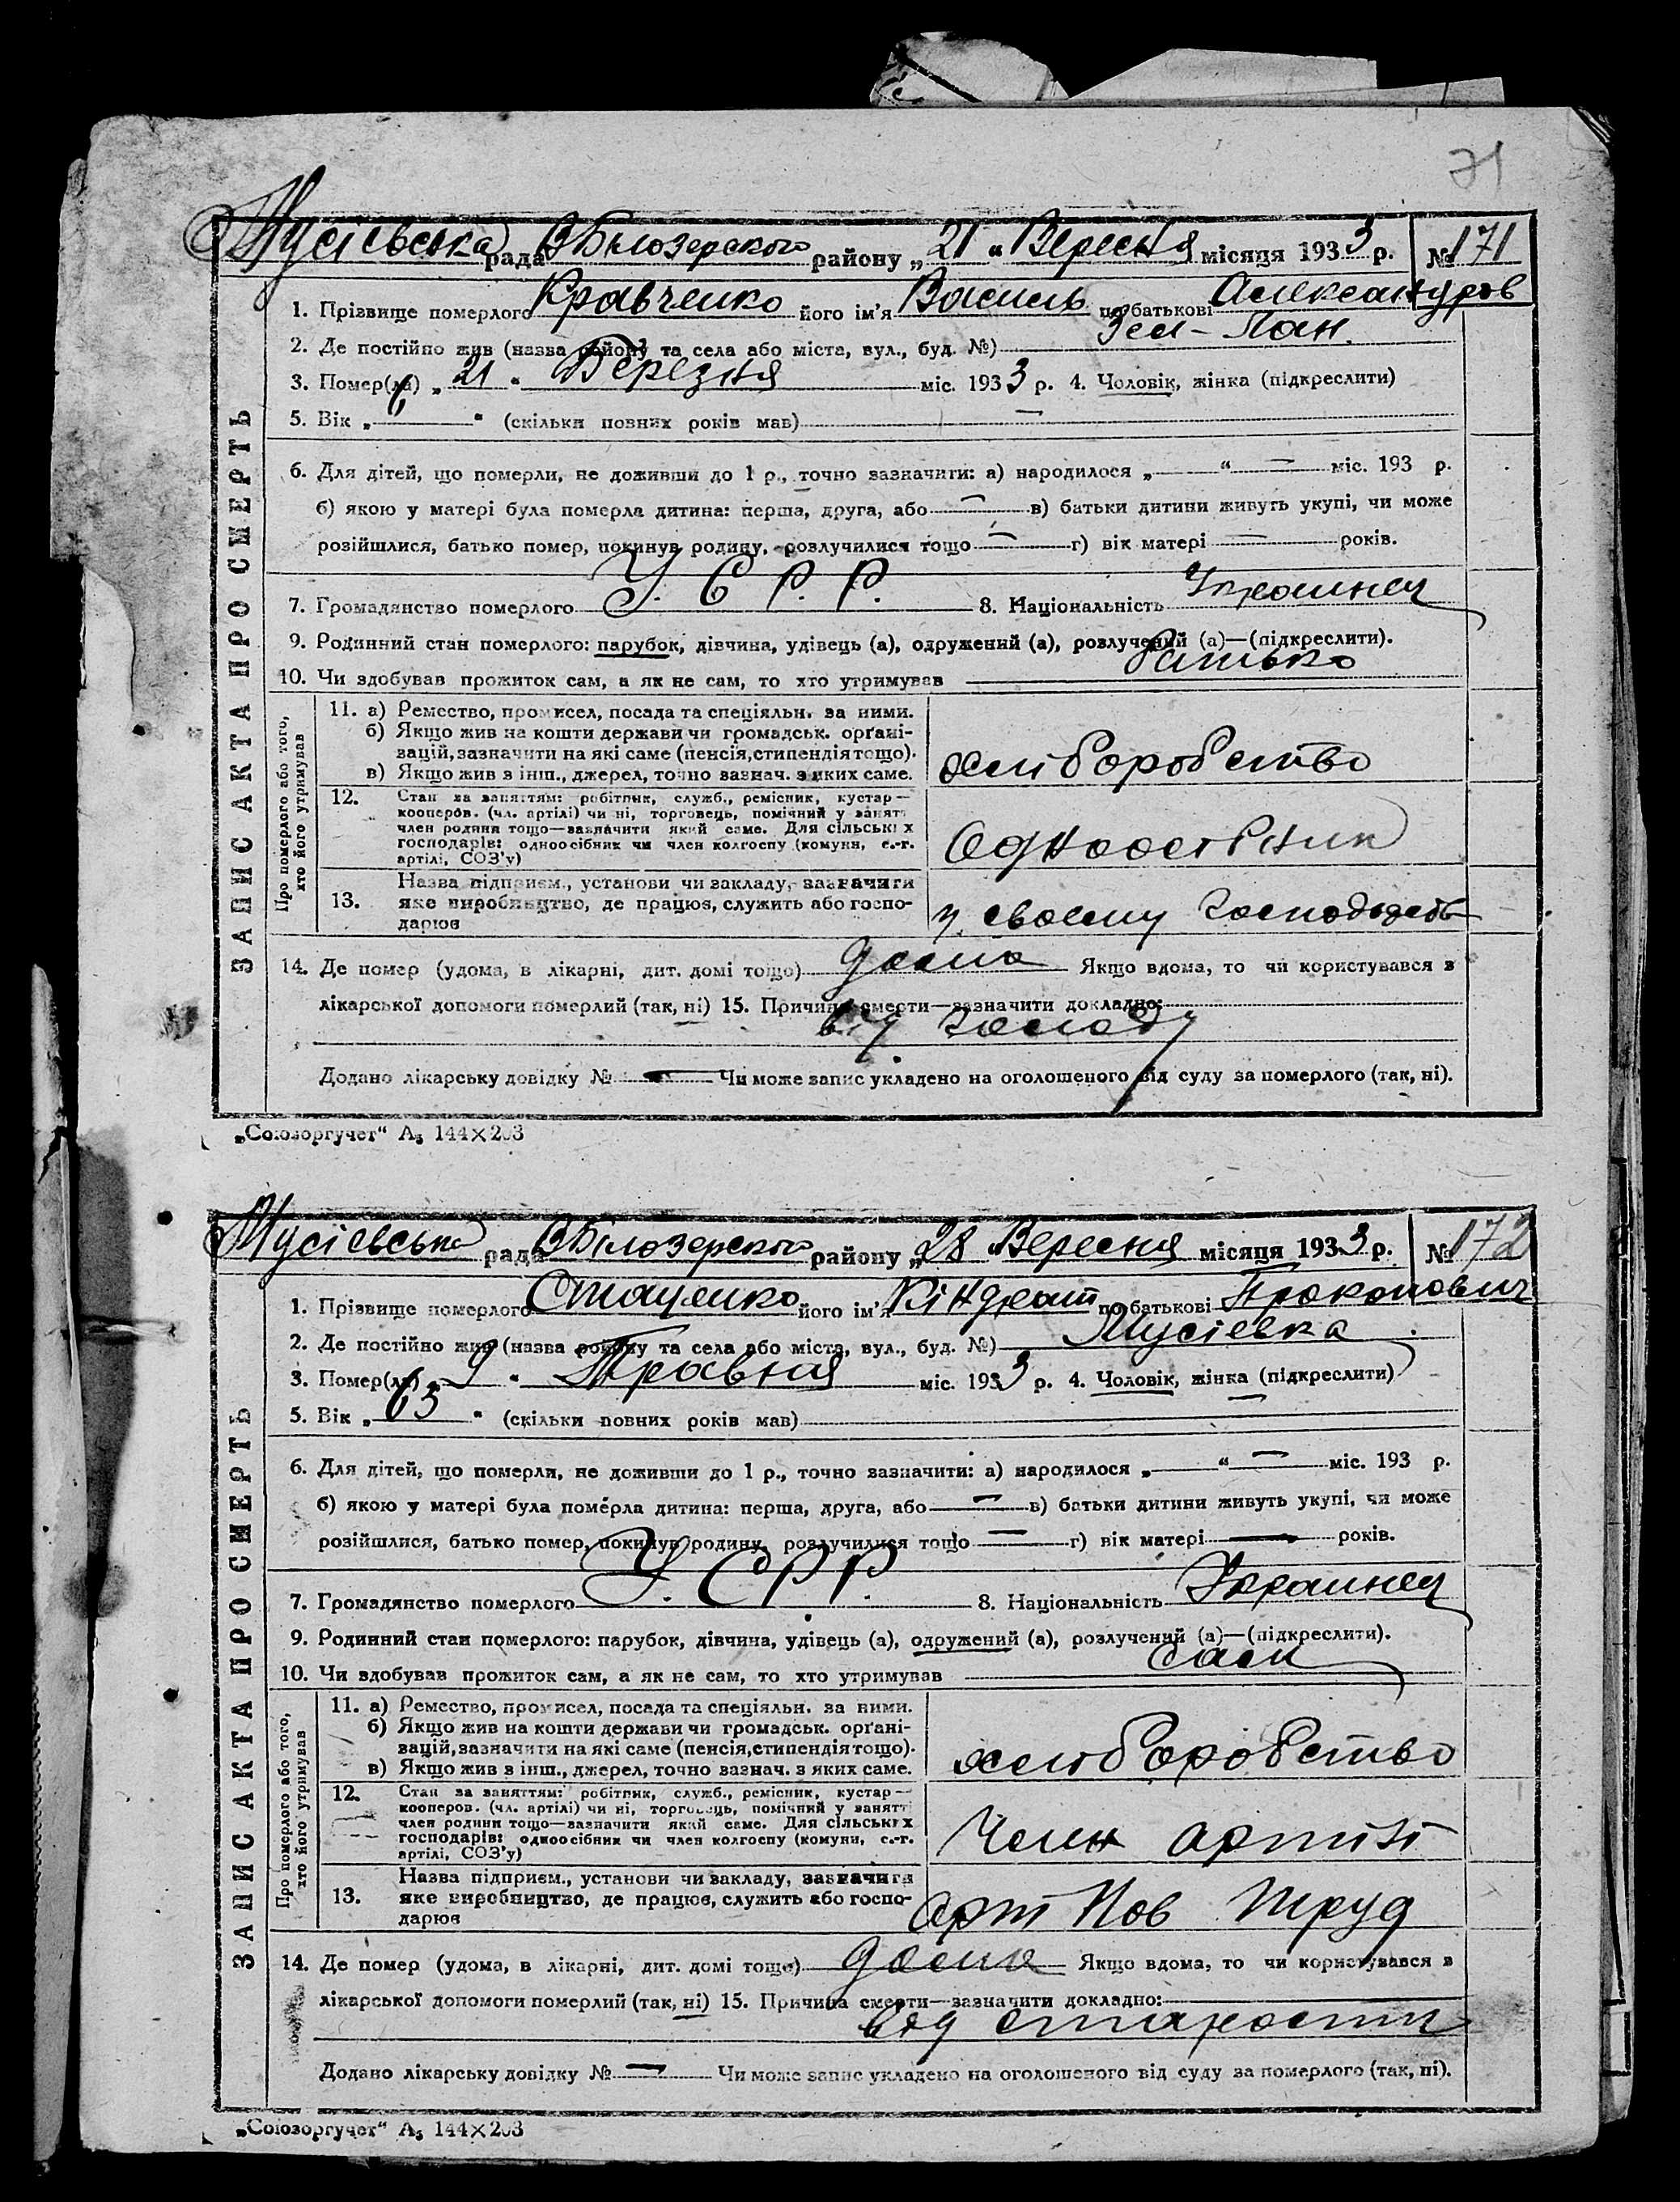 71
Мусієвська рада В Білозерского району „21“ Вересня місяця 1933 р. № 171
1. Прізвище померлого Кравченко його ім'я Василь по батькові Александров
2. Де постійно жив (назва району та села або міста, вул., буд. №) Зел-Лан.
3. Помер(ла) „21“ Березня міс. 1933 р. 4. Чоловік, жінка (підкреслити)
5. Вік „6“ (скільки повних років мав) —
6. Для дітей, що померли, не доживши до 1 р., точно зазначити: а) народилося „—“ — міс. 193 р.
б) якою у матері була померла дитина: перша, друга, або — в) батьки дитини живуть укупі, чи може
розійшлися, батько помер, покинув родину, розлучилися тощо — г) вік матері — років.
7. Громадянство померлого У. С Р. Р. 8. Національність Украинец
9. Родинний стан померлого: парубок, дівчина, удівець (а), одружений (а), розлучений (а)—(підкреслити).
10. Чи здобував прожиток сам, а як не сам, то хто утримував батько
ЗАПИС АКТА ПРО СМЕРТЬ
Про померлого або того, хто його утримував
11. а) Ремество, промисел, посада та спеціяльн. за ними.
б) Якщо жив на кошти держави чи громадськ. орґані-
зацій, зазначити на які саме (пенсія, стипендія тощо).
в) Якщо жив з інш., джерел, точно зазнач. з яких саме.
хлиборобство
12. Стан за заняттям: робітник, служб., ремісник, кустар—
кооперов. (чл. артілі) чи ні, торговець, помічний у занятті
член родини тощо—зазначити який саме. Для сільських
господарів: одноосібник чи член колгоспу (комуни, с.-г.
артілі, СОЗ'у)
Одноосібник
13. Назва підприєм., установи чи закладу, зазначити
яке виробництво, де працює, служить або госпо-
дарює
у своему
14. Де помер (удома, в лікарні, дит. домі тощо) дома Якщо вдома, то чи користувався з
лікарської допомоги померлий (так, ні) 15. Причина смерти—зазначити докладно:
від голоду
Додано лікарську довідку № — Чи може запис укладено на оголошеного від суду за померлого (так, ні).
„Союзоргучет“ А5 144×203
Мусієвська рада В Білозерского району „28“ Вересня місяця 1933 р. № 172
1. Прізвище померлого Стаценко його ім'я Кіндрат по батькові Прокопович
2. Де постійно жив (назва району та села або міста, вул., буд. №) Мусієвка
3. Помер(ла) „9“ Травня міс. 1933 р. 4. Чоловік, жінка (підкреслити)
5. Вік „63“ (скільки повних років мав) —
6. Для дітей, що померли, не доживши до 1 р., точно зазначити: а) народилося „—“ — міс. 193 р.
б) якою у матері була померла дитина: перша, друга, або — в) батьки дитини живуть укупі, чи може
розійшлися, батько помер, покинув родину, розлучилися тощо — г) вік матері — років.
7. Громадянство померлого У. С Р Р. 8. Національність Украинец
9. Родинний стан померлого: парубок, дівчина, удівець (а), одружений (а), розлучений (а)—(підкреслити).
10. Чи здобував прожиток сам, а як не сам, то хто утримував сам
ЗАПИС АКТА ПРО СМЕРТЬ
Про померлого або того, хто його утримував
11. а) Ремество, промисел, посада та спеціяльн. за ними.
б) Якщо жив на кошти держави чи громадськ. орґані-
зацій, зазначити на які саме (пенсія, стипендія тощо).
в) Якщо жив з інш., джерел, точно зазнач. з яких саме.
хлиборобство
12. Стан за заняттям: робітник, служб., ремісник, кустар—
кооперов. (чл. артілі) чи ні, торговець, помічний у занятті
член родини тощо—зазначити який саме. Для сільських
господарів: одноосібник чи член колгоспу (комуни, с.-г.
артілі, СОЗ'у)
Член артілі
13. Назва підприєм., установи чи закладу, зазначити
яке виробництво, де працює, служить або госпо-
дарює
арт Нов труд
14. Де помер (удома, в лікарні, дит. домі тощо) дома Якщо вдома, то чи користувався з
лікарської допомоги померлий (так, ні) 15. Причина смерти—зазначити докладно:
від старости
Додано лікарську довідку № — Чи може запис укладено на оголошеного від суду за померлого (так, ні).
„Союзоргучет“ А5 144×203